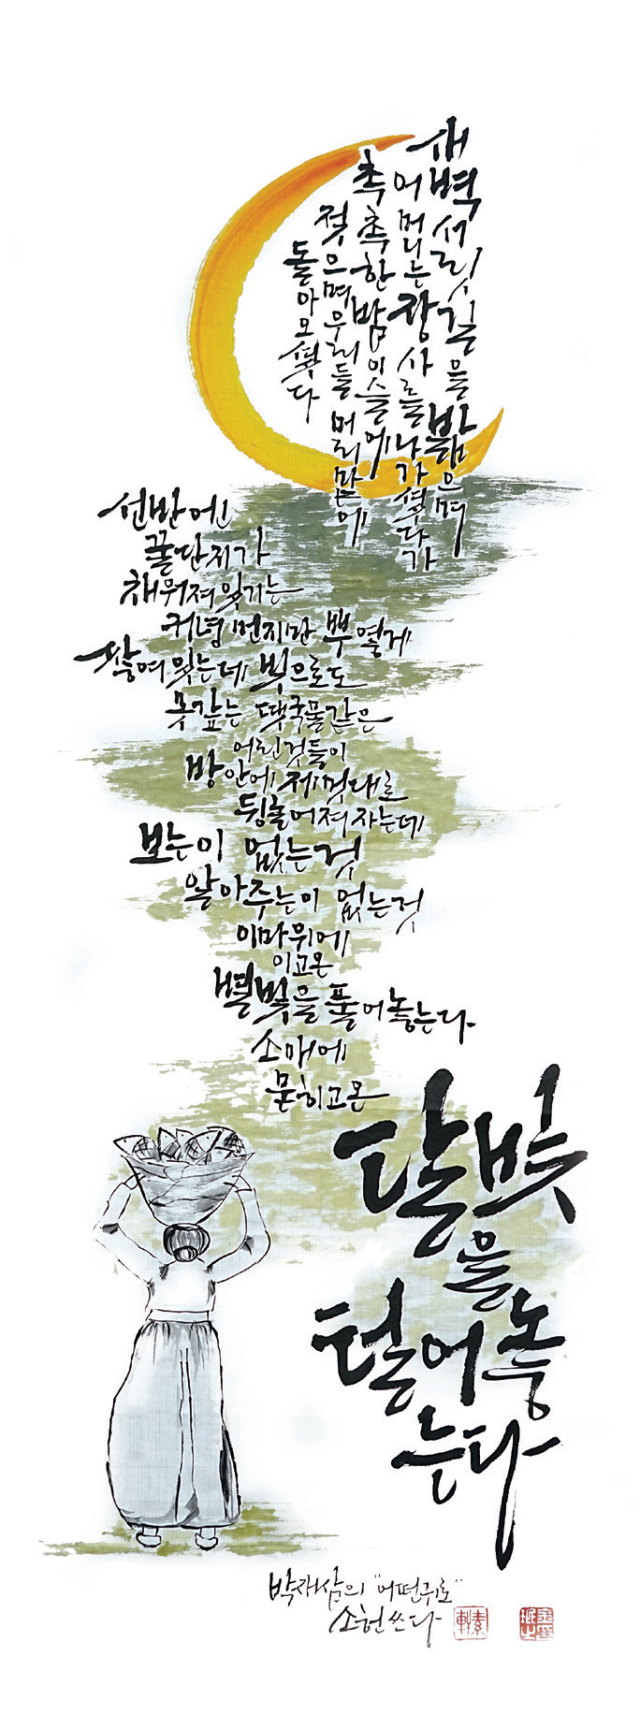 새벽서릿길을 밟으며
어머니는 장사를 나가셨다가
촉촉한 밤이슬에
젖으며 우리들 머리맡에
돌아오셨다
선반엔
꿀단지가
채워져 있기는
커녕 먼지만 뿌옇게
쌓여 있는데 빚으로도
못 갚는 땟국물같은
어린것들이
방안에 제멋대로
뒹굴어져 자는데
보는이 없는것
알아주는이 없는것
이마위에
이고온
별빛을 풀어놓는다
소매에
묻히고온
달빛
을
털어놓
는다
박재삼의 "어떤귀로"
소헌쓰다
素軒